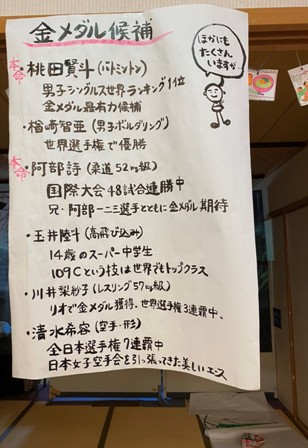 金メダル候補
ほかにも
たくさん
いますが
本命
桃田賢斗(バトミントン)
男子シングルス世界ランキング1位
金メダル最有力候補
・楢崎智亜(男子ボルダリング)
世界選手権で優勝
本命
・阿部詩(柔道52kg級)
国際大会48試合連勝中
兄・阿部一二三選手とともに金メダル期待
・玉井陸斗(高飛び込み)
14歳のスーパー中学生
109Cという技は世界でもトップクラス
・川井梨紗子(レスリング57kg級)
リオで金メダル獲得、世界選手権3連覇中。
・清水希容(空手・形)
全日本選手権7連覇中
日本女子空手会を引っ張ってきた美しいエース